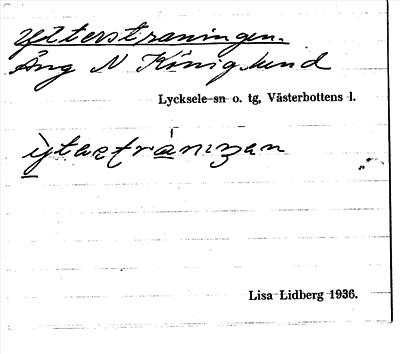 Ytterstraningen.
Äng N Königslund
Lycksele sn o. tg, Västerbottens l.
ỳtaʀstránıŋan
Lisa Lidberg 1936.